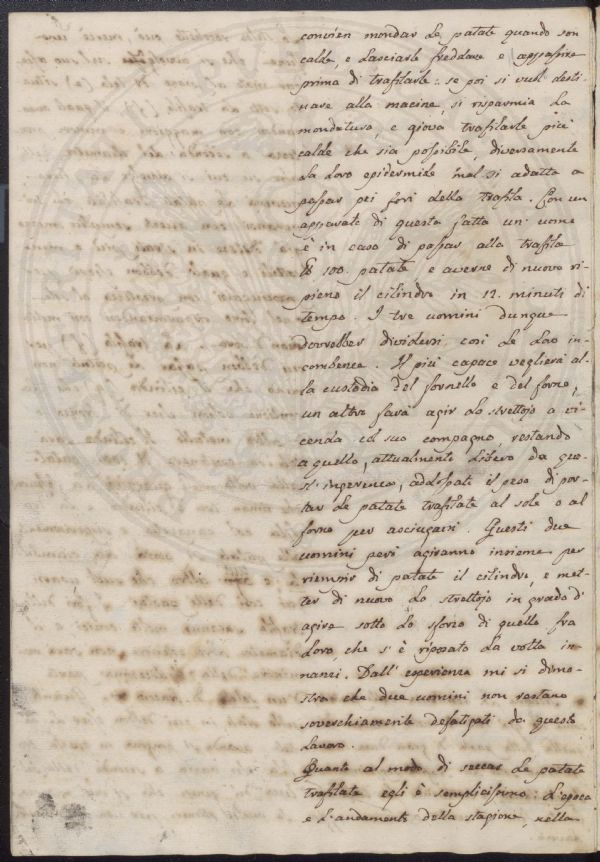 convien mondar le patate quando son
calde, e lasciarle freddare e appassire
prima di trafilarle: se poi si vuol desti-
nare alla macine, si risparmia la
mondatura, e giova trafilarle più
calde che sia possibile, diversamente
la loro epidermide mal si adatta a
passar pei fori della trafila. Con un
apparato di questa fatta un uomo
è in caso di passar alla trafila
℔ 100. patate e averne di nuovo ri-
pieno il cilindro in 12. minuti di
tempo. I tre uomini dunque
dovrebber dividersi così le loro in-
combenze. Il più capace veglierà al-
la custodia del fornello e del forno,
un altro farà agir lo strettojo a vi-
cenda col suo compagno, restando
a quello, attualmente libero da que-
st' ingerenza, addossati il peso di por-
tar le patate trafilate al sole o al
forno per asciugarsi. Questi due
uomini però agiranno insieme per
riempir di patate il cilindro, e met-
ter di nuovo lo strettojo in grado d'
agire sotto lo sforzo di quello fra
loro, che s' è riposato la volta in-
nanzi. Dall' esperienza mi si dimo-
stra che due uomini non restano
soverchiamente defatigati da questo
lavoro.
Quanto al modo di seccar le patate
trafilate egli è semplicissimo: L'epoca
e l'andamento della stagione, nella